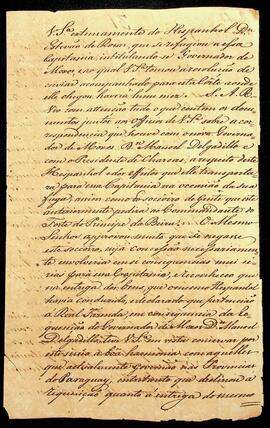 V. Sa. o tratamento do Hespanhol Dn.
Estevão de Rosas, que se refugiou a essa
Capitania, intitulando-se Governador de
Moxos, e ao qual V. Sa. tomou a resolução de
enviar acompanhado para esta Corte aonde
elle chegou haverá hum mez. S. A. R.
Vio com attenção tudo o que contem os docu
mentos juntos ao Officio de V. Sa. sobre a cor
respondencia que houve com o novo Governa
dor de Moxos Dn. Manoel Delgadillo e
com o Presidente de Charcas, a respeito deste
Hespanhol e dos effeitos que elle transporta
ra para essa Capitania na occasião da sua
fuga, assim como o socorro de gente que este
anteriormente pedira ao Commandante do
Forte do Principe da Beira. O Mesmo
Senhor approvou ainda que Se negasse
este socorro, cuja concessão necessariamente
envolveria em si consequencias mui se
rias para essa Capitania, e reconheceo que
na entrega dos bens que o mesmo Hespanhol
havia conduzido, e declarado que pertencião
á Real Fazenda, em consequencia da re
quisição do Governador de Moxos Dn. Manoel
Delgadillo, teve V. Sa. em vista conservar por
inteiro a boa harmonia com aquelles
que actualmente governão nas Provincias
do Paraguay, entretanto que declinou a
requisição quanto á entrega do mesmo